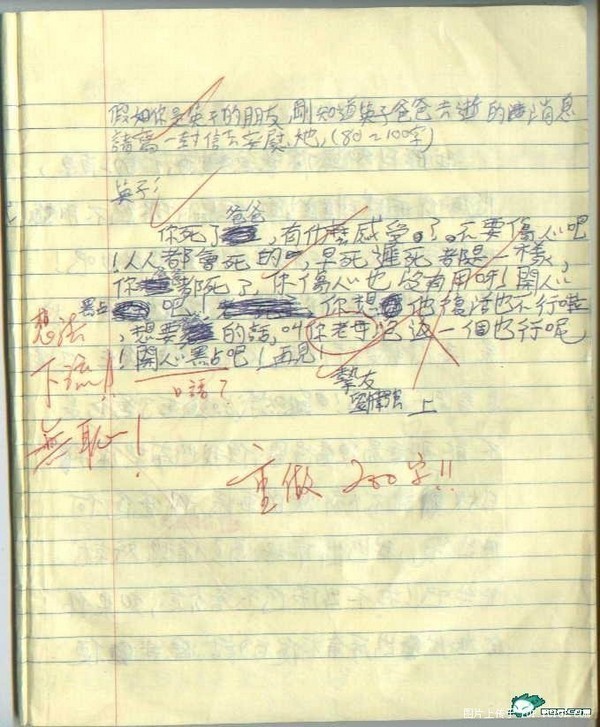 假如你是英子的朋友,剛知道英子爸爸去逝的消息
請寫一封信去安慰她,(80~100字)
英子:
你死了爸爸,有什麼感受。了。不要傷心吧
!人人都會死的,早死遲死都是一樣,
你爸都死了,你傷心也沒有用呀!開心
黑占吧!你想他復活也不行啦
,想要的話,叫你老母包返一個也行呢
!開心黑占吧!再見!
摯友
上
想法
下流!!
無恥!
口語?
重做 200字!!